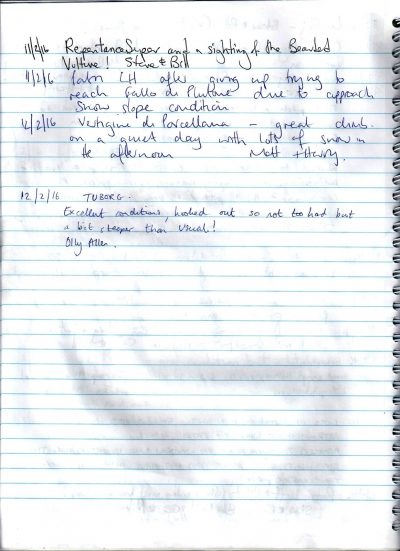 11/2/16 Repentance Super and a sighting of the Bearded
Vulture! Steve & Bill
11/2/16 Patri LH after giving up trying to
reach Fallo di Plutone due to approach
snow slope condition
12/2/16 - Vertigine di Porcellana - great climb
on a quiet day with lots of snow in
the afternoon Matt + Harry.
12/2/16 TUBORG.
Excellent conditions, hooked out so not too hard but
a bit steeper than usual!
Olly Allen.